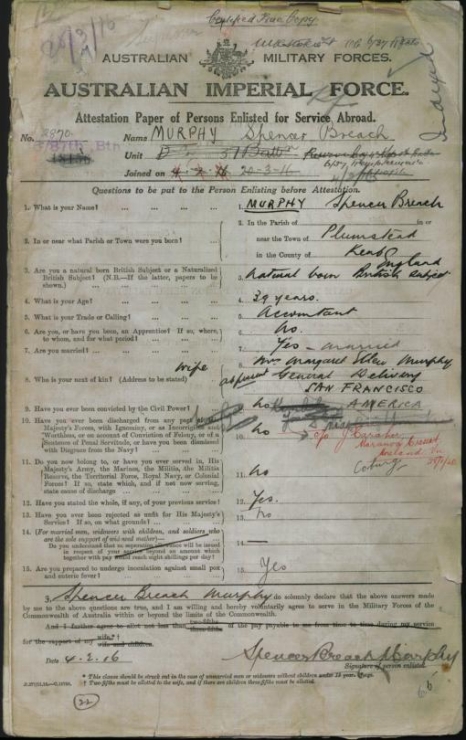 Certified True Copy
20/3/16
AUSTRALIAN MILITARY FORCES.
AUSTRALIAN IMPERIAL FORCE.
Attestation Paper of Persons Enlisted for Service Abroad.
No. 2870 Name MURPHY Spencer Breach
3/37th Btn Unit 37 Battn
Joined on 20-3-16
Questions to be put to the Person Enlisting before Attestation.
1. What is your Name? ... ... ... 1. MURPHY Spencer Breach
2. In or near what Parish or Town were you born? ... 2. In the Parish of in or
near the Town of Plumstead
in the County of Kent England
3. Are you a natural born British Subject or a Naturalized British Subject? (N.B.—If the latter, papers to be shown.) 3. Natural born British Subject
4. What is your Age? ... ... ... 4. 39 years.
5. What is your Trade or Calling? ... ... 5. Accountant
6. Are you, or have you been, an Apprentice? If so, where, to whom, and for what period? ... 6. No.
7. Are you married? ... ... ... 7. Yes - married
8. Who is your next of kin? (Address to be stated) wife 8. Mrs Margaret Murphy
General Delivery
SAN FRANCISCO
AMERICA
9. Have you ever been convicted by the Civil Power? 9. No
10. Have you ever been discharged from any part of His Majesty's Forces, with Ignominy, or as Incorrigible and Worthless, or on account of Conviction of Felony, or of a Sentence of Penal Servitude, or have you been dismissed with Disgrace from the Navy? 10. No
Coburg
11. Do you now belong to, or have you ever served in, His Majesty's Army, the Marines, the Militia, the Militia Reserve, the Territorial Force, Royal Navy, or Colonial Forces? If so, state which, and if not now serving, state cause of discharge 11. No
12. Have you stated the whole, if any, of your previous service? 12. Yes.
13. Have you ever been rejected as unfit for His Majesty's Service? If so, on what grounds? 13. No
14. (For married men, widowers with children, and soldiers who are the sole support of widowed mother)— 14. —
Do you understand that no separation allowance will be issued in respect of your service beyond an amount which together with pay would reach eight shillings per day?
15. Are you prepared to undergo inoculation against small pox and enteric fever? 15. Yes
I, Spencer Breach Murphy do solemnly declare that the above answers made
by me to the above questions are true, and I am willing and hereby voluntarily agree to serve in the Military Forces of the
Commonwealth of Australia within or beyond the limits of the Commonwealth.
And I further agree to allot not less than two-fifths three-fifths of the pay payable to me from time to time during my service
for the support of my wife.* wife and children.
Date 4.2.16 Spencer Breach Murphy
Signature of person enlisted.
* This clause should be struck out in the case of unmarried men or widowers without children under 18 years of age.
† Two-fifths must be allotted to the wife, and if there are children three-fifths must be allotted.
22